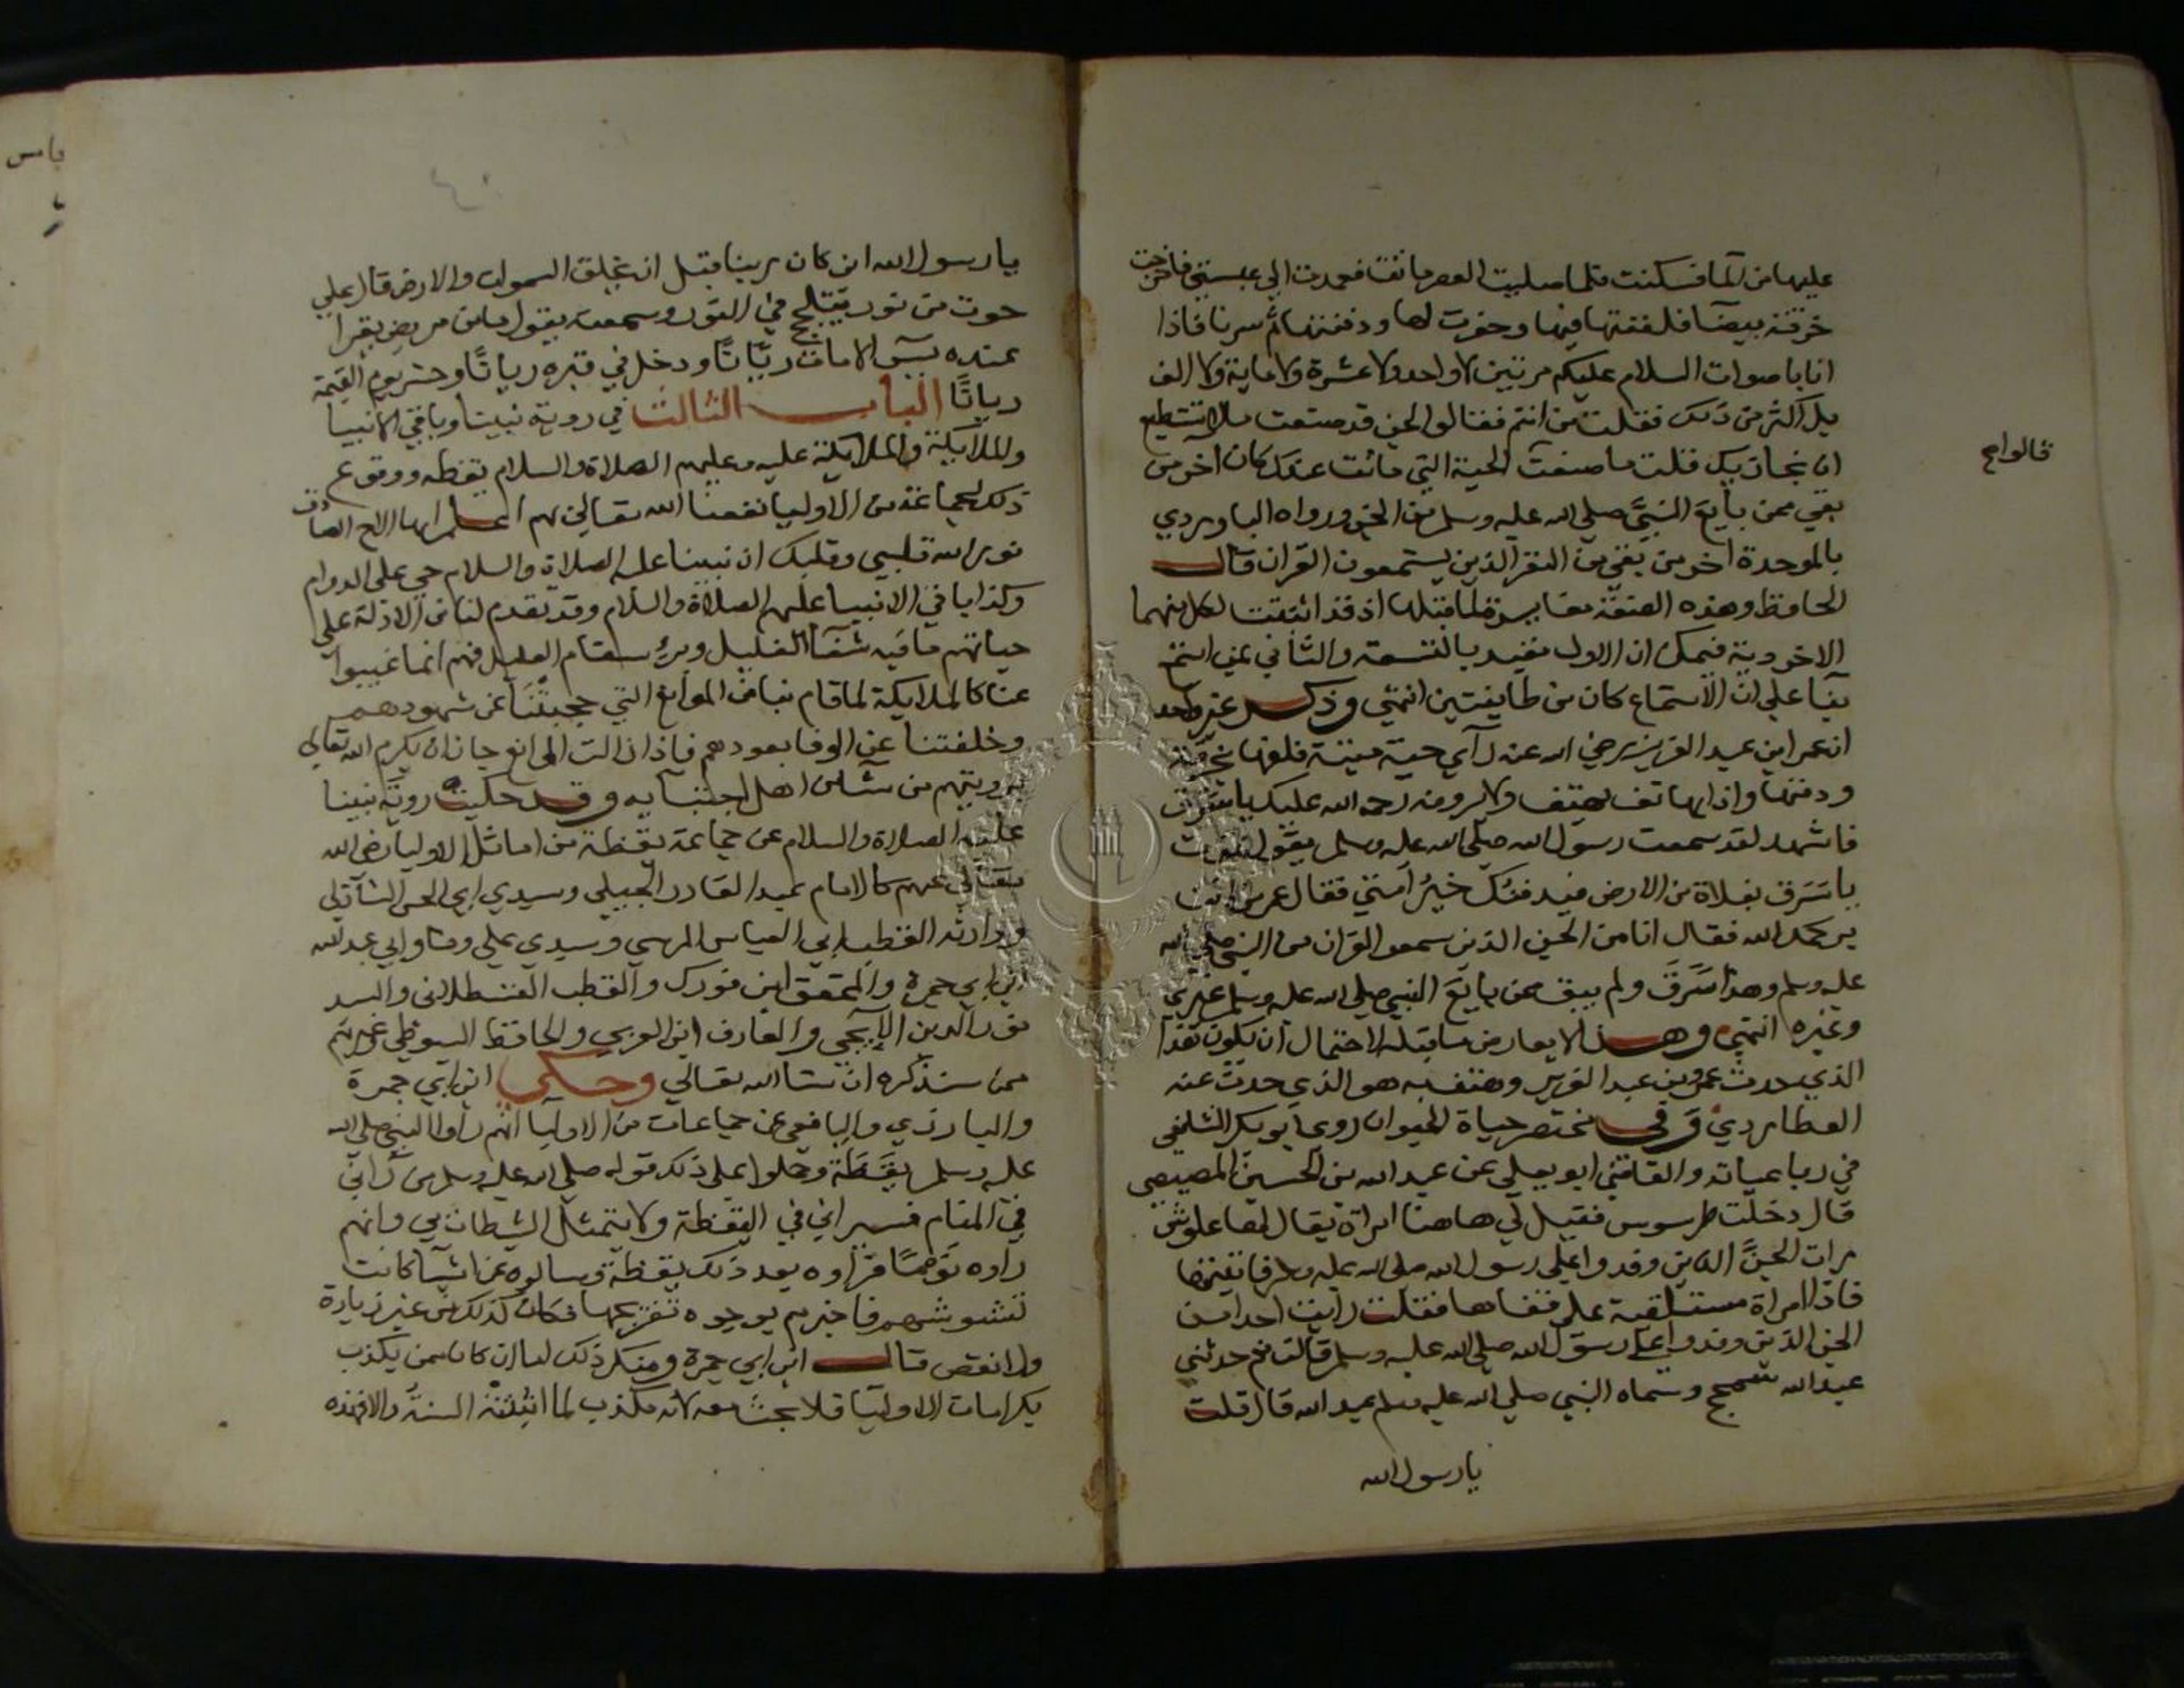 عليها من الما فسكنت فلما صليت العصر ماتت فعمدت الي عيبتي فاخرجت
خرقة بيضا فلففتها فيها وحفرت لها ودفنتها ثم سرنا فاذا
انا باصوات السلام عليكم مرتين لا واحد ولا عشرة ولا ماية ولا الف
بل اكثر من ذلك فقلت من انتم فقالوا الجن قد صنعت ما لا نستطيع
ان نجازيك قلت ما صنعت الحية التي ماتت عندك كان اخر من
قالوا
بقي ممن بايع النبي صلي الله عليه وسلم من الجن ورواه الباوردي
بالموحدة اخر من بقي من النفر الذين يستمعون القران قال
الحافظ وهذه القصة مغايرة لما قبلها اذ قد اثبتت لكل منهما
الاخروية فيمكن ان الاول مقيد بالتسعة والثاني بمن استمع
بنا علي ان الاستماع كان من طايفتين انتهي وذكر غير واحد
ان عمر ابن عبد العزيز رضي الله عنه راي حية ميتة فلفها بخرقة
ودفنها واذا بهاتف يهتف ولا يرونه رحمة الله عليك يا سرق
فاشهد لقد سمعت رسول الله صلي الله عليه وسلم يقول تموت
يا سرق بفلاة من الارض فيدفنك خير امتي فقال عمر من انت
يرحمك الله فقال انا من الجن الذين سمعوا القران من النبي صلي الله
عليه وسلم وهذا سرق ولم يبق ممن بايع النبي صلي الله عليه وسلم غيري
وغيره انتهي وهذا لا يعارض ما قبله لاحتمال ان يكون هذا
الذي حدث عمر بن عبد العزيز وهتف به هو الذي حدث عنه
العطاردي وفي مختصر حياة الحيوان روي ابو بكر الشافعي
في رباعياته والقاضي ابو يعلي عن عبد الله بن الحسين المصيصي
قال دخلت طرسوس فقيل لي هاهنا امراة يقال لها
رات الجن الذين وفدوا علي رسول الله صلي الله عليه وسلم فاتيتها
فاذا امراة مستلقية علي قفاها فقلت رايت احدا من
الجن الذين وفدوا علي رسول الله صلي الله عليه وسلم قالت نعم حدثني
عبد الله سمحج وسماه النبي صلي الله عليه وسلم عبد الله قال قلت
يا رسول الله
يا رسول الله اين كان ربنا قبل ان يخلق السموات والارض قال علي
حوت من نور يتلجلج في النور وسمعته يقول ما من مريض يقرا
عنده يس الا مات ريانا ودخل في قبره ريانا وحشر يوم القيمة
ريانا الباب الثالث في روية نبينا وباقي الانبيا
والملايكة والملايكة عليه وعليهم الصلاة والسلام يقظه ووقوع
ذلك لجماعة من الاوليا نفعنا الله تعالي بهم اعلم ايها الاخ الصادق
نور الله قلبي وقلبك ان نبينا عليه الصلاة والسلام حي علي الدوام
وكذا باقي الانبيا عليهم الصلاة والسلام وقد تقدم لنا من الادلة علي
حياتهم ما فيه شفا الغليل وبرؤ سقام العليل فهم انما غيبوا
عنا كالملايكة لما قام بنا من الموانع التي حجبتنا عن شهودهم
وخلفتنا عن الوفا بعودهم فاذا زالت الموانع جاز ان يكرم الله تعالي
برويتهم من شا من اهل اجتبايه وقد حكيت روية نبينا
عليه الصلاة والسلام عن جماعة يقظة من اماثل الاوليا رضي الله
تعالي عنهم كالامام عبد القادر الجيلي وسيدي ابي الحسن الشاذلي
ووارثه القطب ابي العباس المرسي وسيدي علي وفا وابي عبد الله
ابن ابي جمرة والمحقق ابن فورك والقطب القسطلاني والسيد
نور الدين الايجي والعارف ابن العربي والحافظ السيوطي وغيرهم
ممن سنذكره ان شا الله تعالي وحكي ابن ابي جمرة
والبارزي واليافعي عن جماعات من الاوليا انهم راوا النبي صلي الله
عليه وسلم يقظة وحملوا علي ذلك قوله صلي الله عليه وسلم من راني
في المنام فسيراني في اليقظة ولا يتمثل الشيطان بي وانهم
راوه نوما فراوه بعد ذلك يقظة وسالوه عن اشيا كانت
تشوشهم فاخبرهم بوجوه تفريجها فكان كذلك من غير زيادة
ولا نقص قال ابن ابي جمرة ومنكر ذلك اما ان كان ممن يكذب
بكرامات الاوليا فلا بحث معه لانه مكذب لما اثبتته السنة والا فهذه